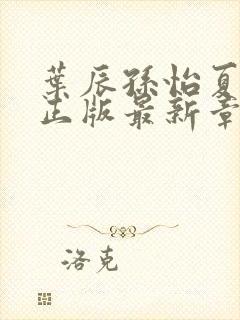 葉辰孫怡夏
正版最新章
洛克